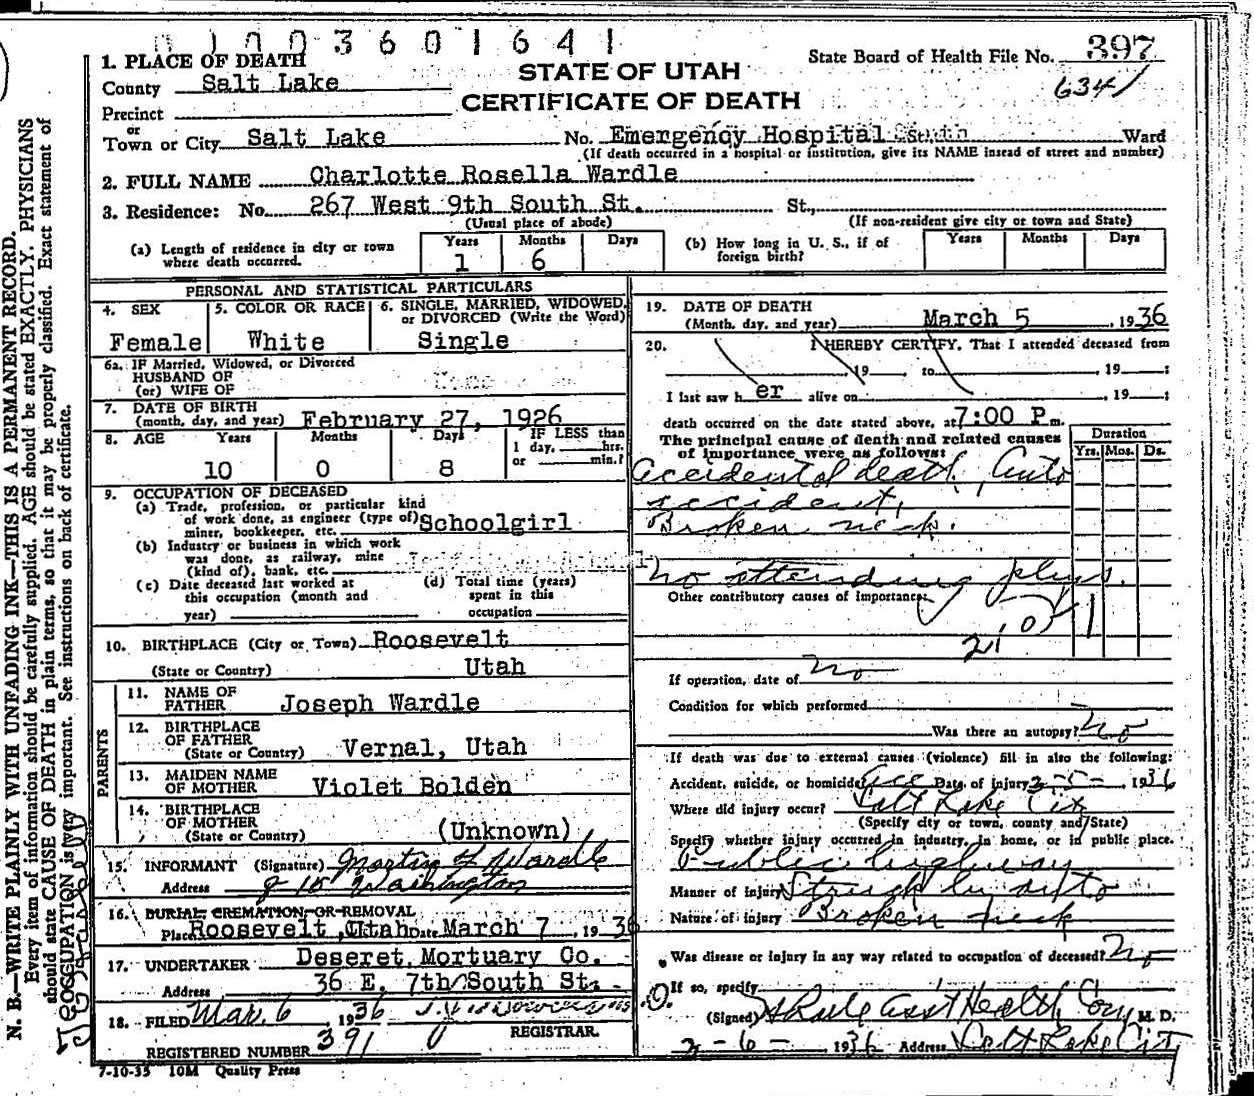 1003601641
1. PLACE OF DEATH
State Board of Health File No. 397
County Salt Lake
STATE OF UTAH
6341
Precinct
CERTIFICATE OF DEATH
or
Town or City Salt Lake No. Emergency Hospital St. Ward
(If death occurred in a hospital or institution, give its NAME insead of street and number)
2. FULL NAME Charlotte Rosella Wardle
3. Residence: No. 267 West 9th South St. St.,
(Usual place of abode) (If non-resident give city or town and State)
(a) Length of residence in city or town where death occurred. Years 1 Months 6 Days
(b) How long in U. S., if of foreign birth? Years Months Days
PERSONAL AND STATISTICAL PARTICULARS
4. SEX Female
5. COLOR OR RACE White
6. SINGLE, MARRIED, WIDOWED, or DIVORCED (Write the Word) Single
6a. IF Married, Widowed, or Divorced
HUSBAND OF
(or) WIFE OF
7. DATE OF BIRTH
(month, day, and year) February 27, 1926
8. AGE Years 10 Months 0 Days 8 IF LESS than 1 day, hrs. or min.?
9. OCCUPATION OF DECEASED
(a) Trade, profession, or particular kind
of work done, as engineer (type of) Schoolgirl
miner, bookkeeper, etc.
(b) Industry or business in which work
was done, as railway, mine
(kind of), bank, etc.
(c) Date deceased last worked at this occupation (month and year)
(d) Total time (years) spent in this occupation
10. BIRTHPLACE (City or Town) Roosevelt
(State or Country) Utah
PARENTS
11. NAME OF FATHER Joseph Wardle
12. BIRTHPLACE OF FATHER
(State or Country) Vernal, Utah
13. MAIDEN NAME OF MOTHER Violet Bolden
14. BIRTHPLACE OF MOTHER
(State or Country) (Unknown)
15. INFORMANT (Signature) Wardle
Address 815 Washington
16. BURIAL, CREMATION OR REMOVAL
Place Roosevelt, Utah Date March 7, 1936
17. UNDERTAKER Deseret Mortuary Co.
Address 36 E. 7th South St.
18. FILED Mar. 6 1936
REGISTRAR.
REGISTERED NUMBER 391
7-10-35 10M Quality Press
19. DATE OF DEATH
(Month, day, and year) March 5, 1936
20. I HEREBY CERTIFY, That I attended deceased from
19 , to , 19 ;
I last saw h er alive on , 19 ;
death occurred on the date stated above, at 7:00 P m.
The principal cause of death and related causes
of importance were as follows:
Duration
Yrs. Mos. Ds.
Accidental death, Auto
accident,
Broken neck.
No attending phys.
Other contributory causes of Importance:
210
If operation, date of no
Condition for which performed
Was there an autopsy? No
If death was due to external causes (violence) fill in also the following:
Accident, suicide, or homicide? Acc Date of injury 3-5- 1936
Where did injury occur? Salt Lake City
(Specify city or town, county and/State)
Specify whether injury occurred in industry, in home, or in public place.
Public highway
Manner of injury Struck by auto
Nature of injury Broken neck
Was disease or injury in any way related to occupation of deceased? No
If so, specify
(Signed) Ass't Health Com M. D.
3-6- 1936 Address Salt Lake City
N. B.—WRITE PLAINLY WITH UNFADING INK—THIS IS A PERMANENT RECORD.
Every item of information should be carefully supplied. AGE should be stated EXACTLY. PHYSICIANS
should state CAUSE OF DEATH in plain terms, so that it may be properly classified. Exact statement of
OCCUPATION is very important. See instructions on back of certificate.